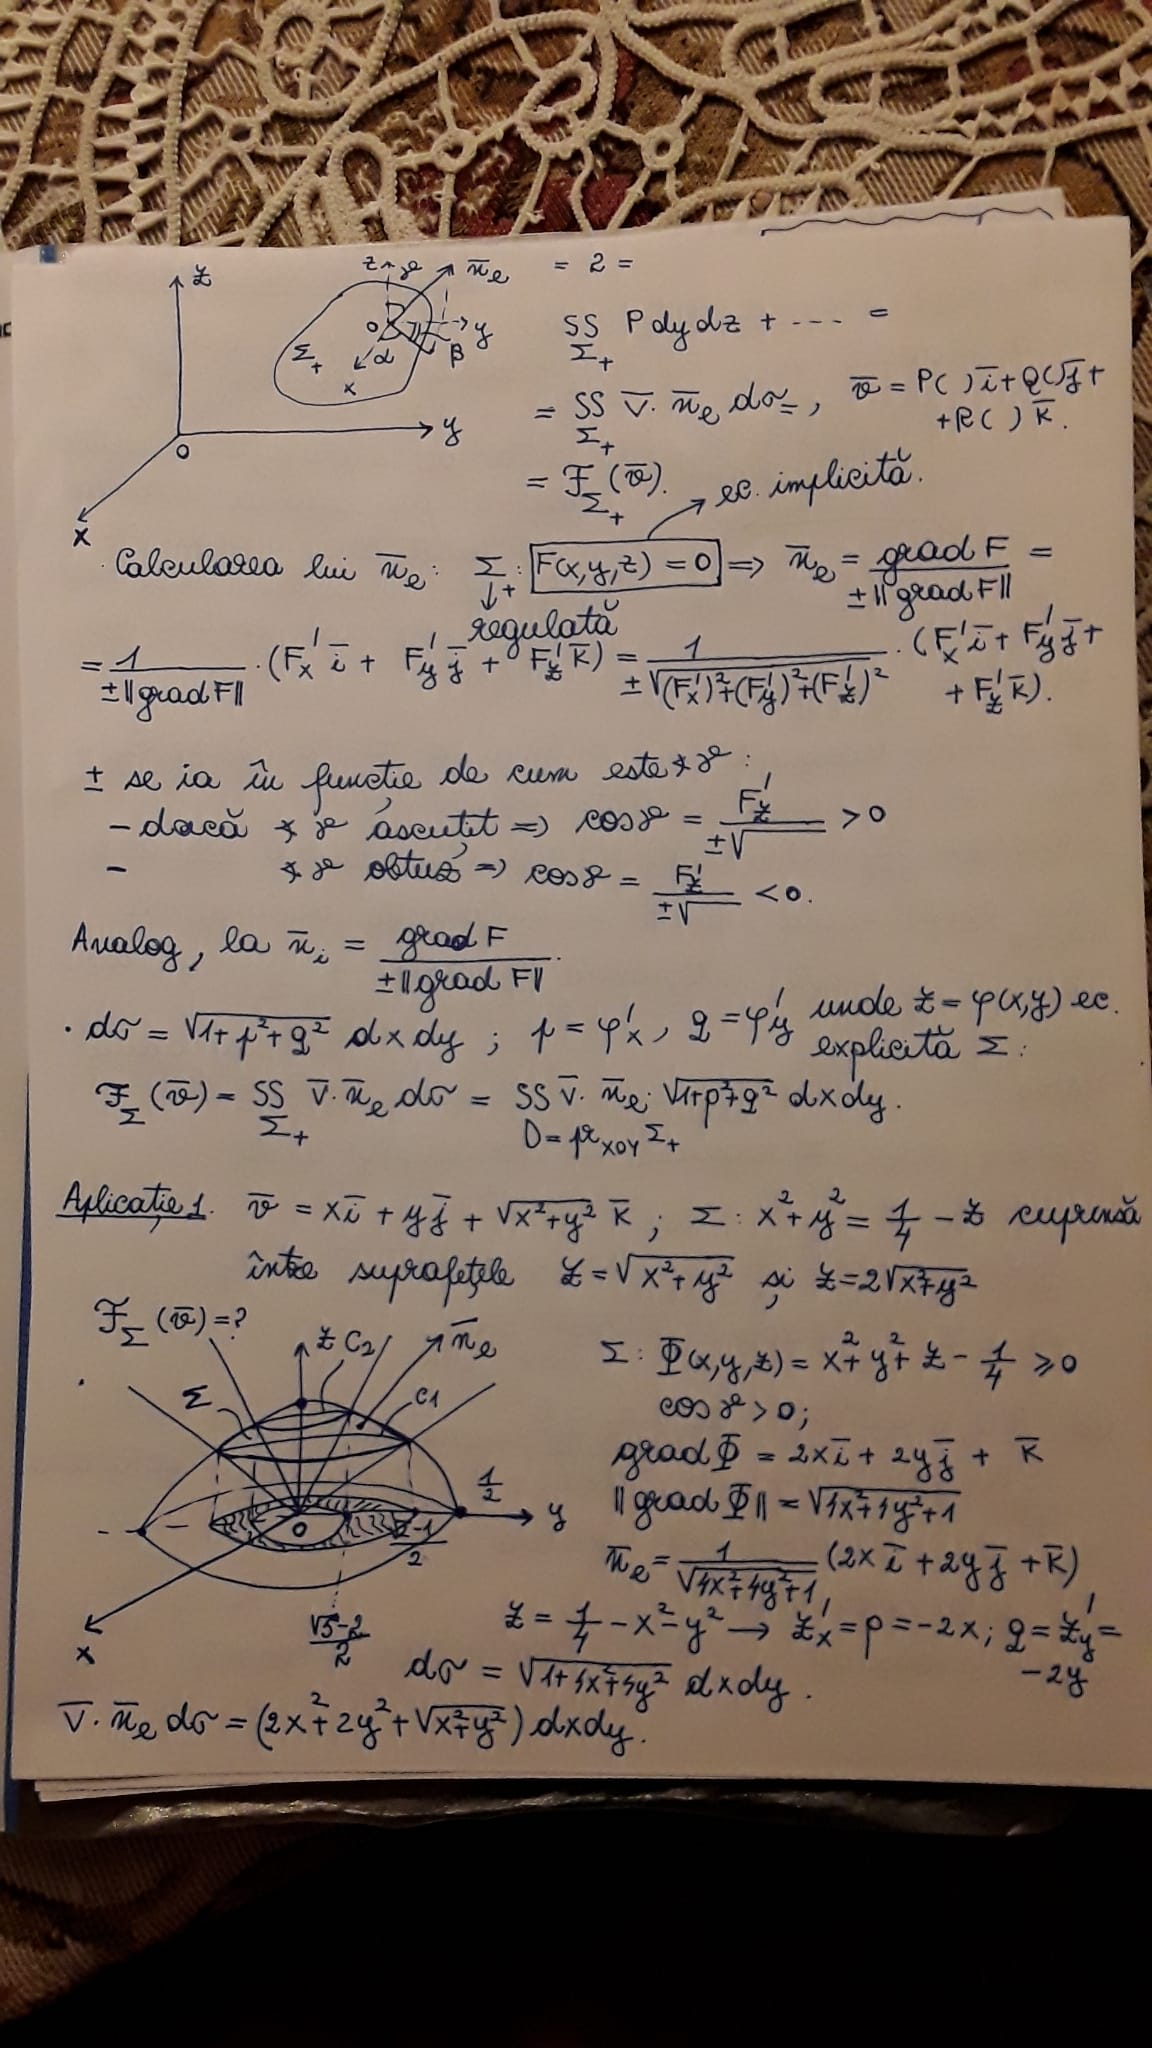 = 2 =
z
z γ n̄e
O y
Σ+ α β
x
y
O
x
SS Σ+ P dy dz + --- =
= SS Σ+ v̄ · n̄e dσ = , v̄ = P( ) ī + Q( ) j̄ +
+ R( ) k̄.
= F Σ+ (v̄). → ec. implicită.
· Calcularea lui n̄e: Σ+ : F(x,y,z) = 0 ⇒ n̄e = grad F / ±‖grad F‖ =
↓ regulată
= 1 / ±‖grad F‖ · (F'x ī + F'y j̄ + F'z k̄) = 1 / ±√(F'x)²+(F'y)²+(F'z)² · (F'x ī + F'y j̄ +
+ F'z k̄).
± se ia în funcție de cum este ∢ γ:
- dacă ∢ γ ascuțit ⇒ cos γ = F'z / ±√ > 0
- ∢ γ obtuz ⇒ cos γ = F'z / ±√ < 0.
Analog, la n̄i = grad F / ±‖grad F‖.
· dσ = √1+p²+q² dx dy ; p = φ'x, q = φ'y unde z = φ(x,y) ec.
explicită Σ:
F Σ (v̄) = SS Σ+ v̄ · n̄e dσ = SS v̄ · n̄e · √1+p²+q² dx dy.
D = pr XOY Σ+
Aplicație 1. v̄ = x ī + y j̄ + √x²+y² k̄ ; Σ: x²+y² = 1/4 - z cuprinsă
între suprafețele z = √x²+y² și z = 2√x²+y²
F Σ (v̄) = ?
z C2 n̄e
Σ C1
1/2 y
O
√2-1 / 2
√5-2 / 2
x
Σ: Φ(x,y,z) = x²+y²+z - 1/4 ≥ 0
cos γ > 0;
grad Φ = 2x ī + 2y j̄ + k̄
‖grad Φ‖ = √4x²+4y²+1
n̄e = 1 / √4x²+4y²+1 (2x ī + 2y j̄ + k̄)
z = 1/4 - x² - y² → z'x = p = -2x; q = z'y =
-2y
dσ = √1+4x²+4y² dx dy.
v̄ · n̄e dσ = (2x²+2y²+√x²+y²) dx dy.